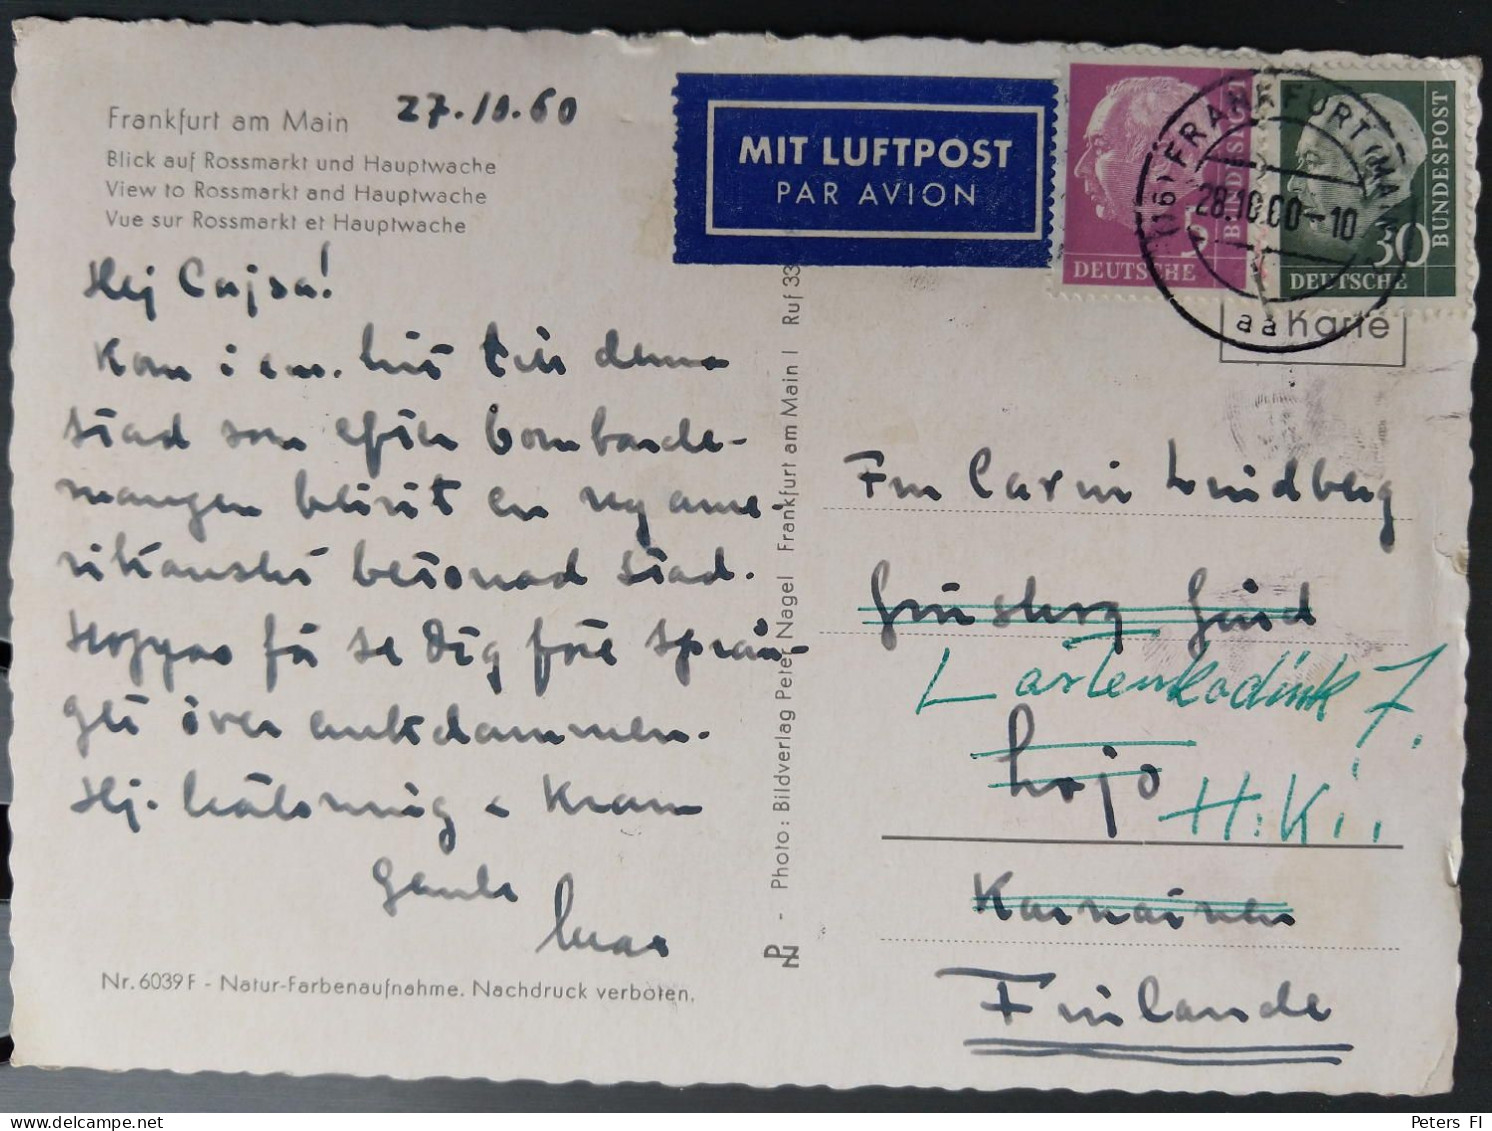 Frankfurt am Main
27.10.60
Blick auf Rossmarkt und Hauptwache
View to Rossmarkt and Hauptwache
Vue sur Rossmarkt et Hauptwache
Hej Cajsa!
Kom i em. hit till denna
stad som efter bombarde-
mangen blivit en ny ame-
rikanskt betonad stad.
Hoppas få se Dig före språn-
get över ankdammen.
Hj. hälsning & Kram
MIT LUFTPOST
PAR AVION
5
BUNDESPOST
DEUTSCHE
30
BUNDESPOST
DEUTSCHE
(16) FRANKFURT (MAIN)
28.10.60-10
aa
Karte
Photo: Bildverlag Peter Nagel Frankfurt am Main I Ruf 33
PN
Lindberg
Gård
7.
Lojo
H:Ki.
Finlande
Nr. 6039 F - Natur-Farbenaufnahme. Nachdruck verboten.
Peters FI